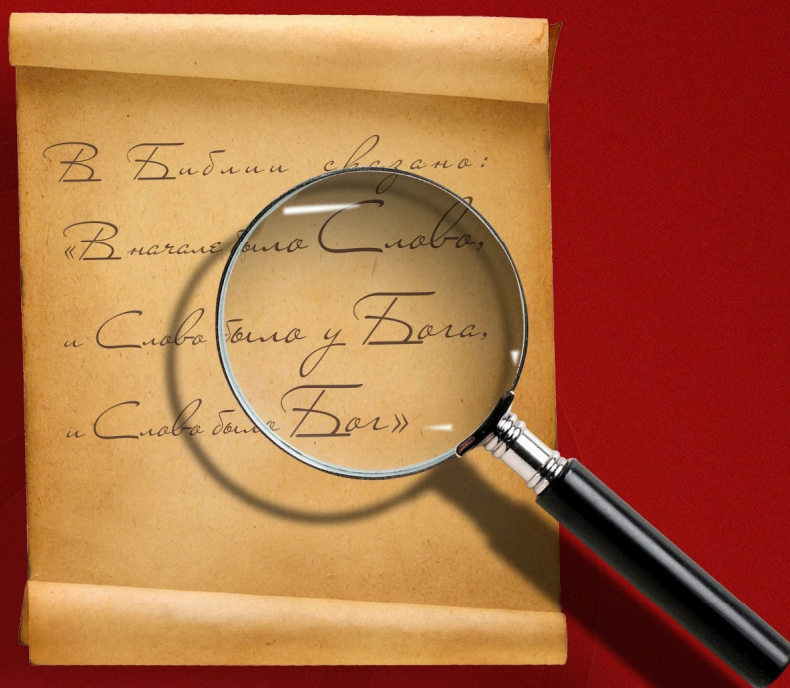 В Библии сказано:
«В начале было Слово,
и Слово было у Бога,
и Слово было Бог»